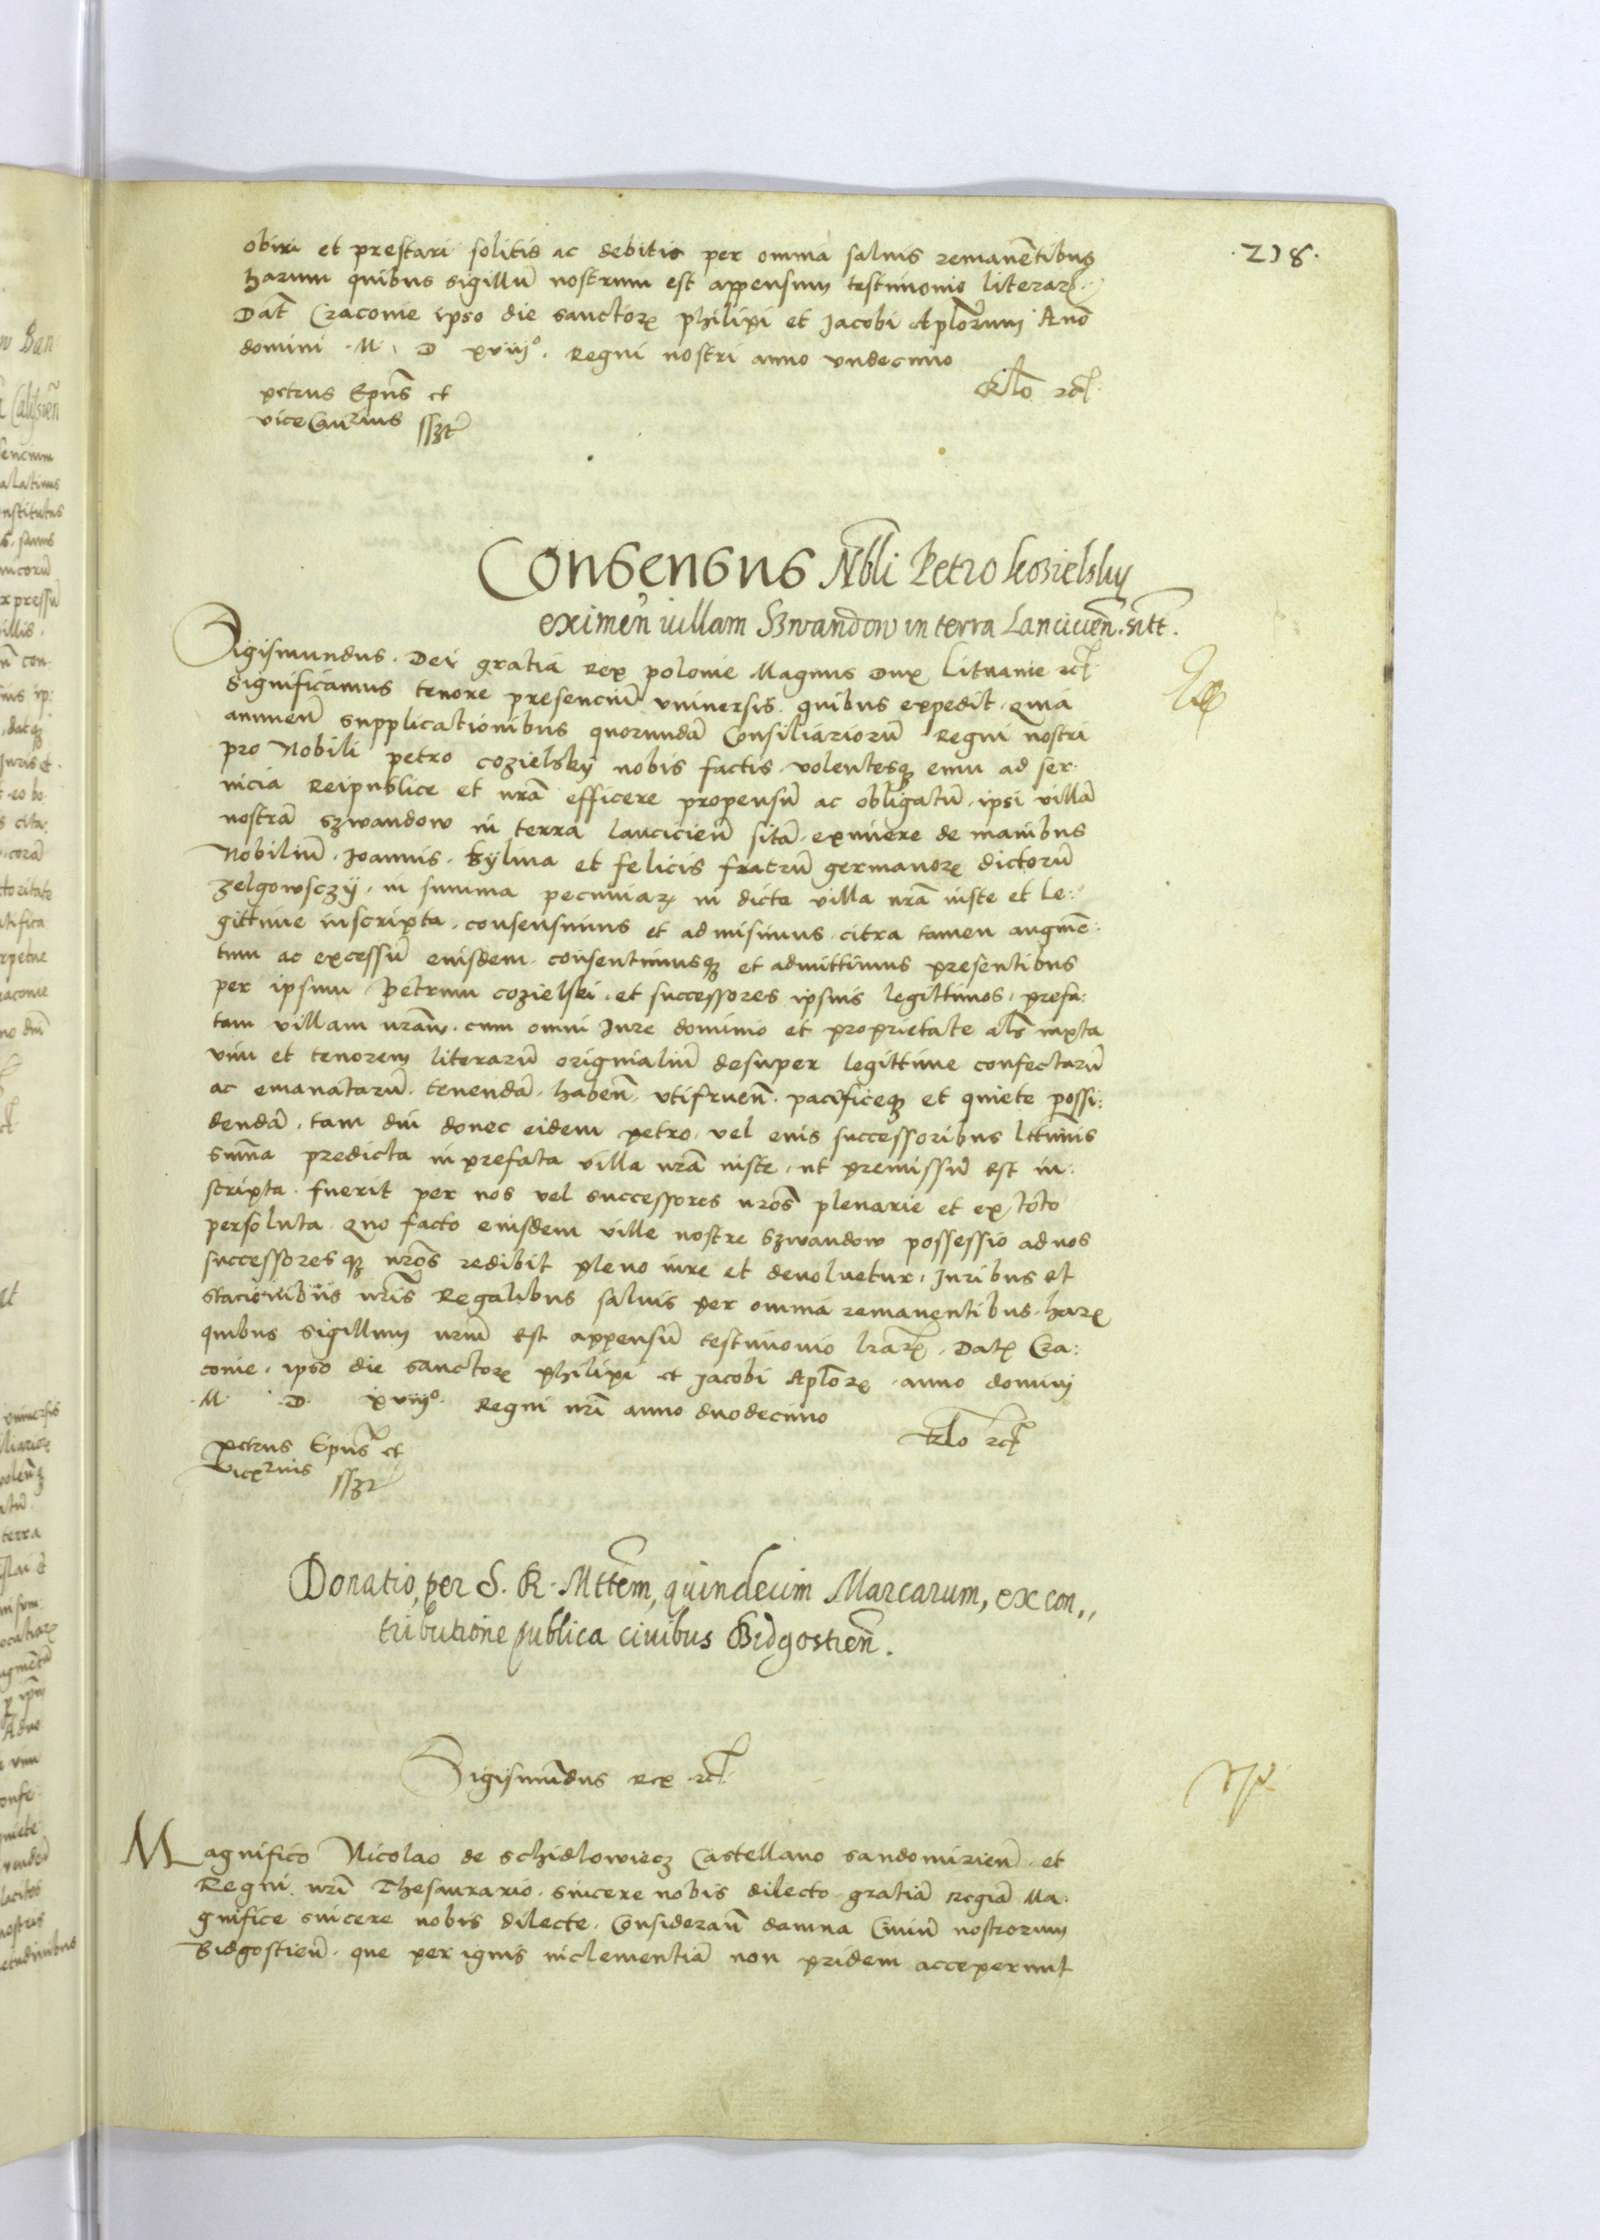 .218.
obiri et prestari solitis ac debitis per omnia salvis remanētibus
harum quibus sigillū nostrum est appensum testimonio literarꝝ.
Dat̄ Cracovie ipso die sanctorꝝ philipi et Jacobi Apl̄orum Anō
domini · M · D xviijº. Regni nostri anno undecimo
petrus Epūs et
viceCan̄rius sszt
Rl̄o rcꝭ
Consensus Nb̄li Petro kozielsky
eximēn villam Szwandow in terra Lanciciēn. sitt̄.
Sigismundus. Dei gratia Rex polonie Magnus Dux Lituanie rcꝭ
Significamus tenore presenciū universis. quibus expedit. quia
annuen̄ supplicationibus quorundā Consiliariorū Regni nostri
pro Nobili petro cozielsky nobis factis. volentesqꝫ eum ad ser:
vicia Reipublice et nr̄a efficere propensū ac obligatū. ipsi villā
nostrā szwandow in terra lanciciēn sitā. eximere de manibus
Nobiliū. Joannis. kylina et felicis fratrū germanorꝝ dictorū
zelgowsczÿ. in summa pecuniarꝝ in dicta villa nr̄a iuste et le:
gittime inscripta. consensimus et admisimus. citra tamen augmē:
tum ac excessū eiusdem. consentimusqꝫ et admittimus presentibus
per ipsum Petrum cozielski. et successores ipsius legittimos. prefa:
tam villam nr̄am. cum omni Jure dominio et proprietate al̄s iuxta
vim et tenorem literarū originaliū desuper legittime confectarū
ac emanatarū. tenendā. haben̄. utifruen̄. pacificeqꝫ et quiete possi:
dendā. tam diu donec eidem petro. vel eius successoribus lttimis
sum̄a predicta in prefata villa nr̄a iuste. ut premissū est in:
scripta. fuerit per nos vel successores nr̄os plenarie et ex toto
persoluta. quo facto eiusdem ville nostre Szwandow possessio ad nos
successoresqꝫ nr̄os redibit pleno iure et devolvetur. Juribus et
stacionibus nr̄is Regalibus salvis per omnia remanentibus. harꝝ
quibus sigillum nr̄um est appensū testimonio lr̄arꝝ. Datꝝ Cra:
covie. ipso die sanctorꝝ philipi et Jacobi Apl̄orꝝ. anno domini
· M · D · xviijº. Regni nr̄i anno duodecimo
petrus Epūs et
vicecrius sszt
Rl̄o rcꝭ
Donatio, per S. R. Mttem, quindecim Marcarum, ex con,,
tributione publica civibus Bidgostien̄.
Sigismūdus Rex rcꝭ
Magnifico Nicolao de Schidlowiecz Castellano sandomirien̄. et
Regni nr̄i Thesaurario. sincere nobis dilecto gratiā regiā Ma:
gnifice sincere nobis dilecte. Consideran̄ damna Civiū nostrorum
Bidgostien̄. que per ignis inclementiā non pridem acceperunt